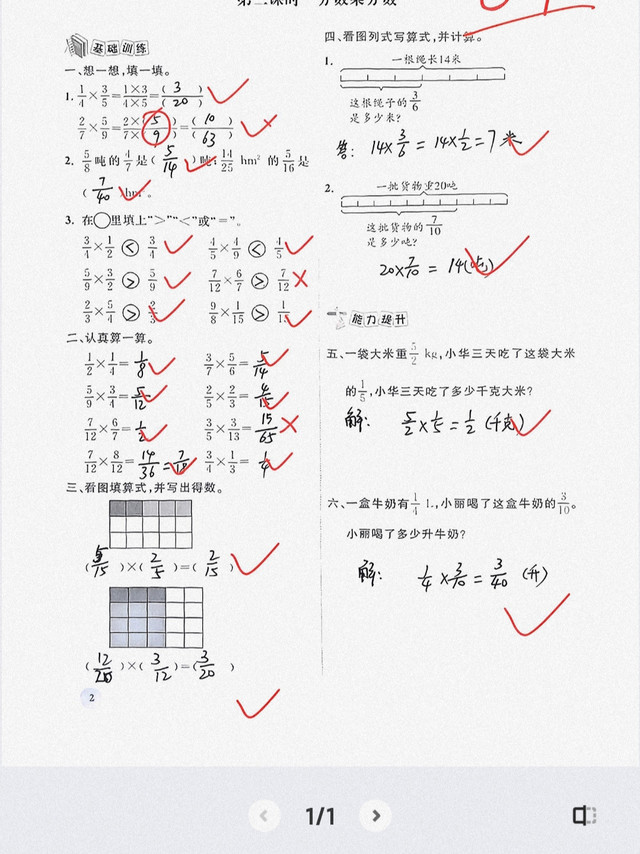 基础训练
一、想一想,填一填。
1. 1/4×3/5=1×3/4×5=(3)/(20)
2/7×5/9=2×(5)/7×(9)=(10)/(63)
2. 5/8吨的4/7是(5/14)吨;14/25 hm²的5/16是
(7/40)hm²。
3. 在○里填上“>”“<”或“=”。
3/4×1/2<3/4 4/5×4/9<4/5
5/9×3/2>5/9 7/12×6/7>7/12
2/3×5/4>2/3 9/8×1/15>1/15
二、认真算一算。
1/2×1/4=1/8 3/7×5/6=5/14
5/9×3/4=5/12 2/5×2/3=4/15
7/12×6/7=1/2 3/5×3/13=15/65
7/12×8/12=14/36=7/18 3/4×1/3=1/4
三、看图填算式,并写出得数。
(5/15)×(2/5)=(2/15)
(12/20)×(3/12)=(3/20)
2
四、看图列式写算式,并计算。
1.
一根绳长14米
这根绳子的3/6
是多少米?
答: 14×3/6=14×1/2=7米
2.
一批货物重20吨
这批货物的7/10
是多少吨?
20×7/10=14(吨)
能力提升
五、一袋大米重5/2 kg,小华三天吃了这袋大米
的1/5,小华三天吃了多少千克大米?
解: 5/2×1/5=1/2(千克)
六、一盒牛奶有1/4 L,小丽喝了这盒牛奶的3/10。
小丽喝了多少升牛奶?
解: 1/4×3/10=3/40(升)
1/1